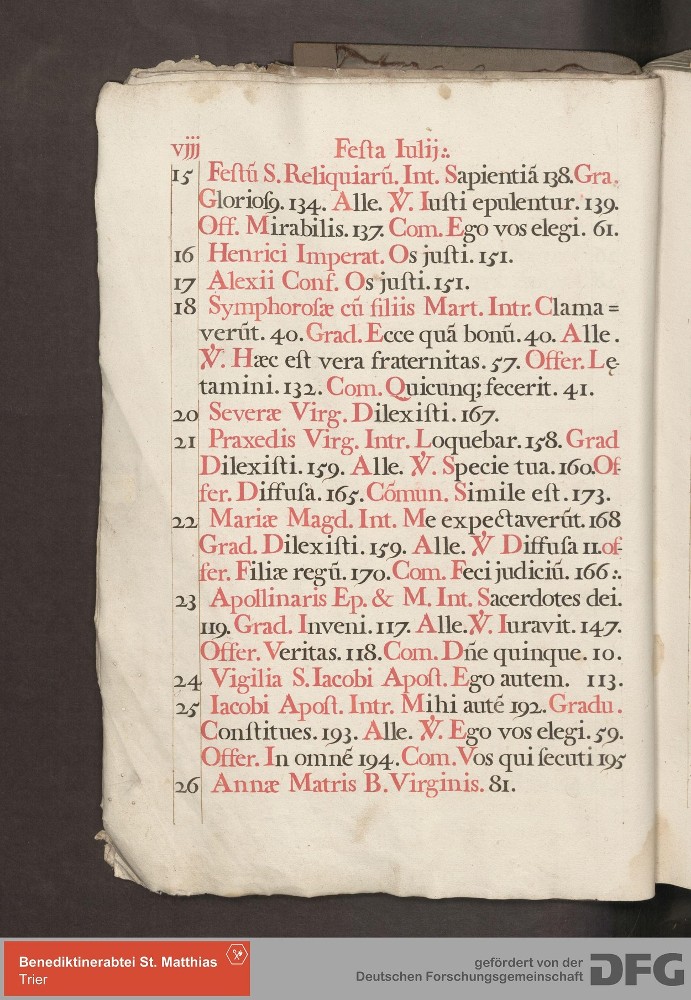 viij Feſta Iulij:.
15 Feſtũ S. Reliquiarũ. Int. Sapientiã 138. Gra.
Glorioſꝯ. 134. Alle. ℣. Iuſti epulentur. 139.
Off. Mirabilis. 137. Com. Ego vos elegi. 61.
16 Henrici Imperat. Os juſti. 151.
17 Alexii Conf. Os juſti. 151.
18 Symphoroſæ cũ filiis Mart. Intr. Clama=
verũt. 40. Grad. Ecce quã bonũ. 40. Alle.
℣. Hæc eſt vera fraternitas. 57. Offer. Lę-
tamini. 132. Com. Quicunq; fecerit. 41.
20 Severæ Virg. Dilexiſti. 167.
21 Praxedis Virg. Intr. Loquebar. 158. Grad
Dilexiſti. 159. Alle. ℣. Specie tua. 160. Of-
fer. Diffuſa. 165. Cõmun. Simile eſt. 173.
22 Mariæ Magd. Int. Me expectaverũt. 168
Grad. Dilexiſti. 159. Alle. ℣ Diffuſa 11. of-
fer. Filiæ regũ. 170. Com. Feci judiciũ. 166:.
23 Apollinaris Ep. & M. Int. Sacerdotes dei.
119. Grad. Inveni. 117. Alle. ℣. Iuravit. 147.
Offer. Veritas. 118. Com. Dñe quinque. 10.
24 Vigilia S. Iacobi Apoſt. Ego autem. 113.
25 Iacobi Apoſt. Intr. Mihi autẽ 192. Gradu.
Conſtitues. 193. Alle. ℣. Ego vos elegi. 59.
Offer. In omnẽ 194. Com. Vos qui ſecuti 195
26 Annæ Matris B. Virginis. 81.
Benediktinerabtei St. Matthias
Trier
gefördert von der
Deutschen Forschungsgemeinschaft DFG